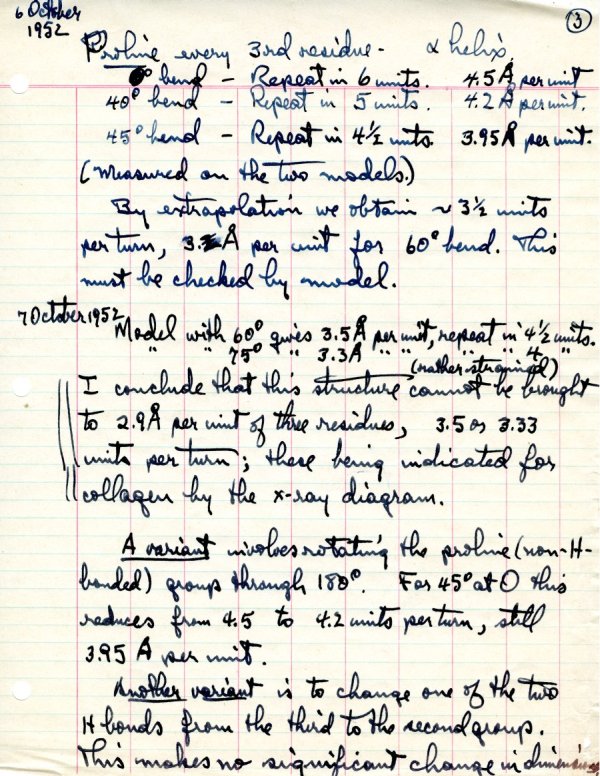 6 October
1952
3
Proline every 3rd residue - α helix
0° bend - Repeat in 6 units. 4.5 Å per unit
40° bend - Repeat in 5 units. 4.2 Å per unit.
45° bend - Repeat in 4½ units. 3.95 Å per unit.
(Measured on the two models.)
By extrapolation we obtain ~ 3½ units
per turn, Å per unit for 60° bend. This
must be checked by model.
7 October 1952
Model with 60° gives 3.5 Å per unit, repeat in 4½ units.
" " 75° " 3.3 Å " " " " 4 "
(rather strained)
I conclude that this structure cannot be brought
to 2.9 Å per unit of three residues, 3.5 or 3.33
units per turn; these being indicated for
collagen by the x-ray diagram.
A variant involves rotating the proline (non-H-
bonded) groups through 180°. For 45° at O this
reduces from 4.5 to 4.2 units per turn, still
3.95 Å per unit.
Another variant is to change one of the two
H bonds from the third to the second group.
This makes no significant change in dimensions